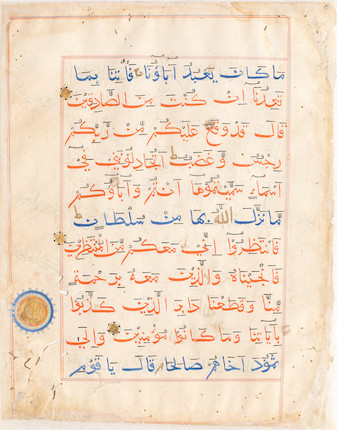 ما كان يعبد آباؤنا فأتنا بما
تعدنا ان كنت من الصادقين
قال قد وقع عليكم من ربكم
رجس وغضب اتجادلونني في
اسماء سميتموها انتم وآباؤكم
ما نزل الله بها من سلطان
فانتظروا اني معكم من المنتظرين
فانجيناه والذين معه برحمة
منا وقطعنا دابر الذين كذبوا
بآياتنا وما كانوا مؤمنين والى
ثمود اخاهم صالحا قال يا قوم